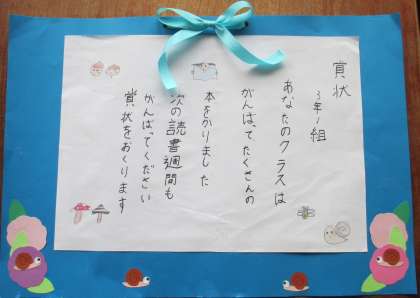 賞状
3年1組
あなたのクラスは
がんばってたくさんの
本をかりました
次の読書週間も
がんばってください
賞状をおくります